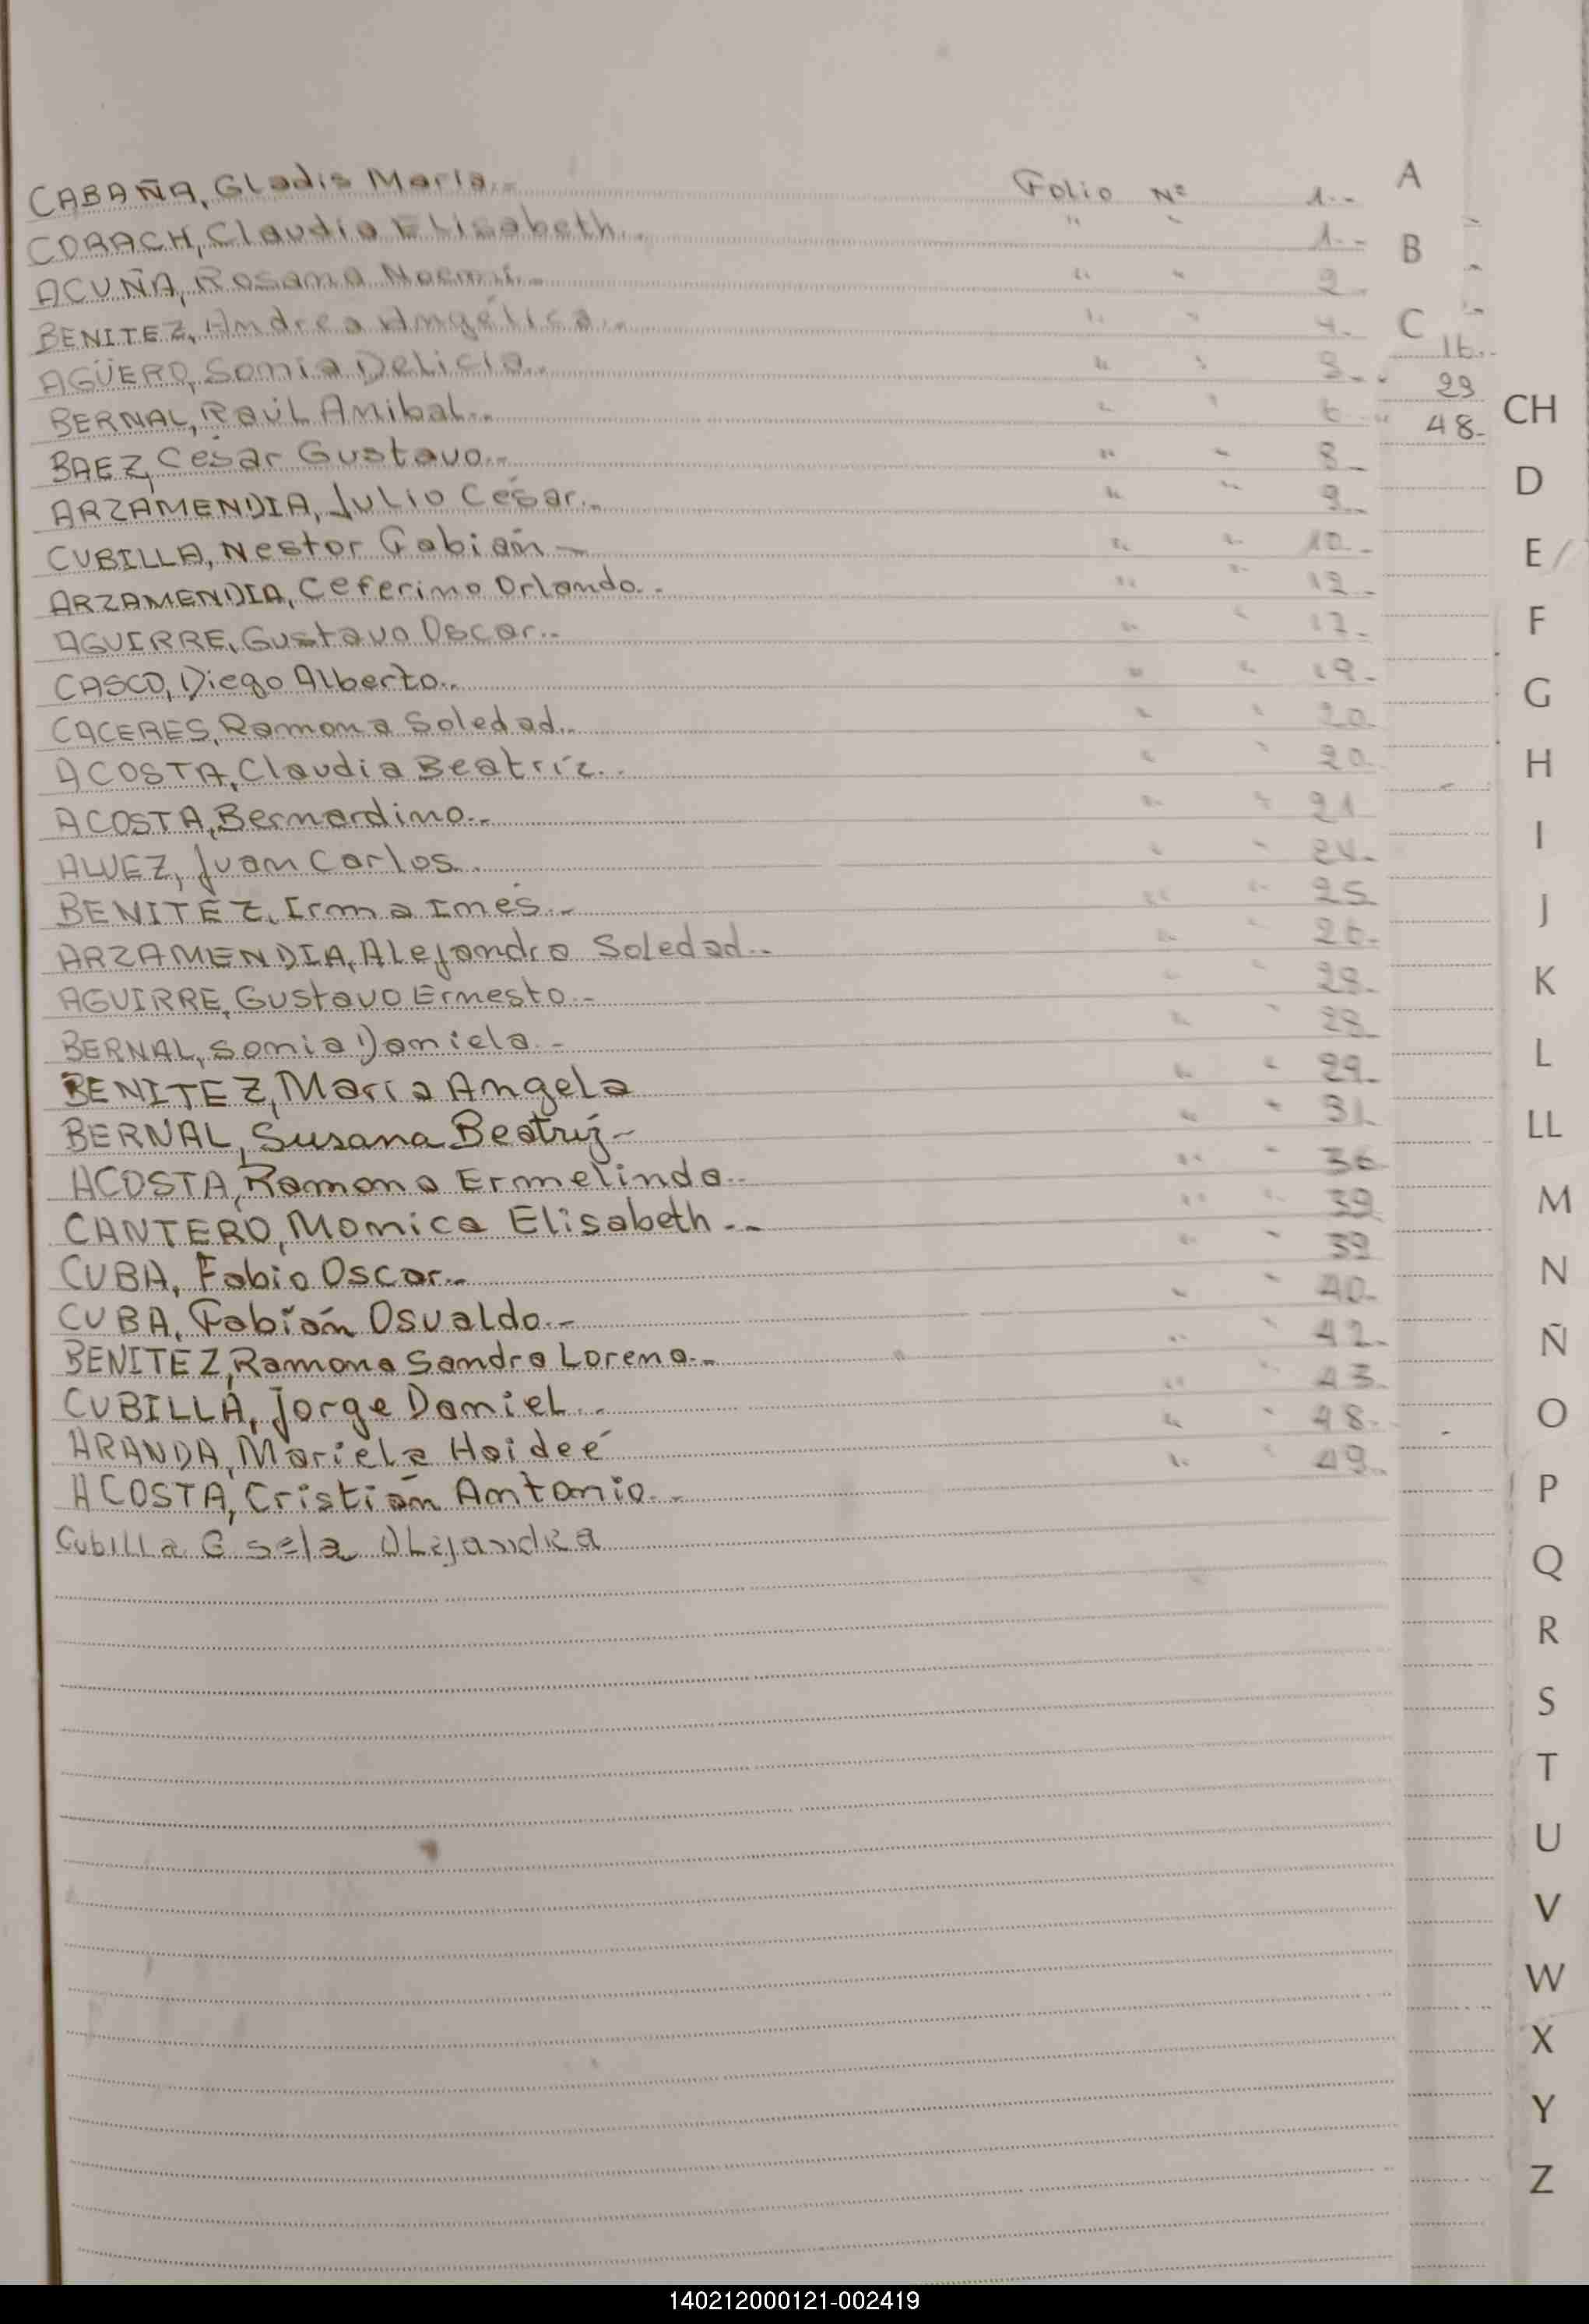 CABAÑA, Gladis María.- Folio Nº 1.-
CORACH, Claudia Elisabeth.- " " 1.-
ACUÑA, Rosana Noemí.- " " 2.-
BENITEZ, Andrea Angélica.- " " 4.-
AGÜERO, Sonia Delicia.- " "
BERNAL, Raúl Anibal.- " " 6
BAEZ, César Gustavo.- " " 8.-
ARZAMENDIA, Julio César.- " " 9.-
CUBILLA, Nestor Fabián.- " " 10.-
ARZAMENDIA, Ceferino Orlando.- " " 12.-
AGUIRRE, Gustavo Oscar.- " " 17.-
CASCO, Diego Alberto.- " " 19.-
CACERES, Ramona Soledad.- " " 20.-
ACOSTA, Claudia Beatríz.- " " 20.-
ACOSTA, Bernardino.- " " 21
ALVEZ, Juan Carlos.- " " 24.-
BENITEZ, Irma Inés.- " " 25.-
ARZAMENDIA, Alejandra Soledad.- " " 26.-
AGUIRRE, Gustavo Ernesto.- " " 28.-
BERNAL, Sonia Daniela.- " " 28.-
BENITEZ, María Angela " " 29.-
BERNAL, Susana Beatriz.- " " 31.-
ACOSTA, Ramona Ermelinda.- " " 36.-
CANTERO, Monica Elisabeth.- " " 39.-
CUBA, Fabio Oscar.- " " 39
CUBA, Fabián Osvaldo.- " " 40.-
BENITEZ, Ramona Sandra Lorena.- " " 42.-
CUBILLA, Jorge Daniel.- " " 43.-
ARANDA, Mariela Haideé " " 48.-
ACOSTA, Cristián Antonio.- " " 49.-
Cubilla Gisela Alejandra
16.-
29
48.-
A
B
C
CH
D
E
F
G
H
I
J
K
L
LL
M
N
Ñ
O
P
Q
R
S
T
U
V
W
X
Y
Z
140212000121-002419